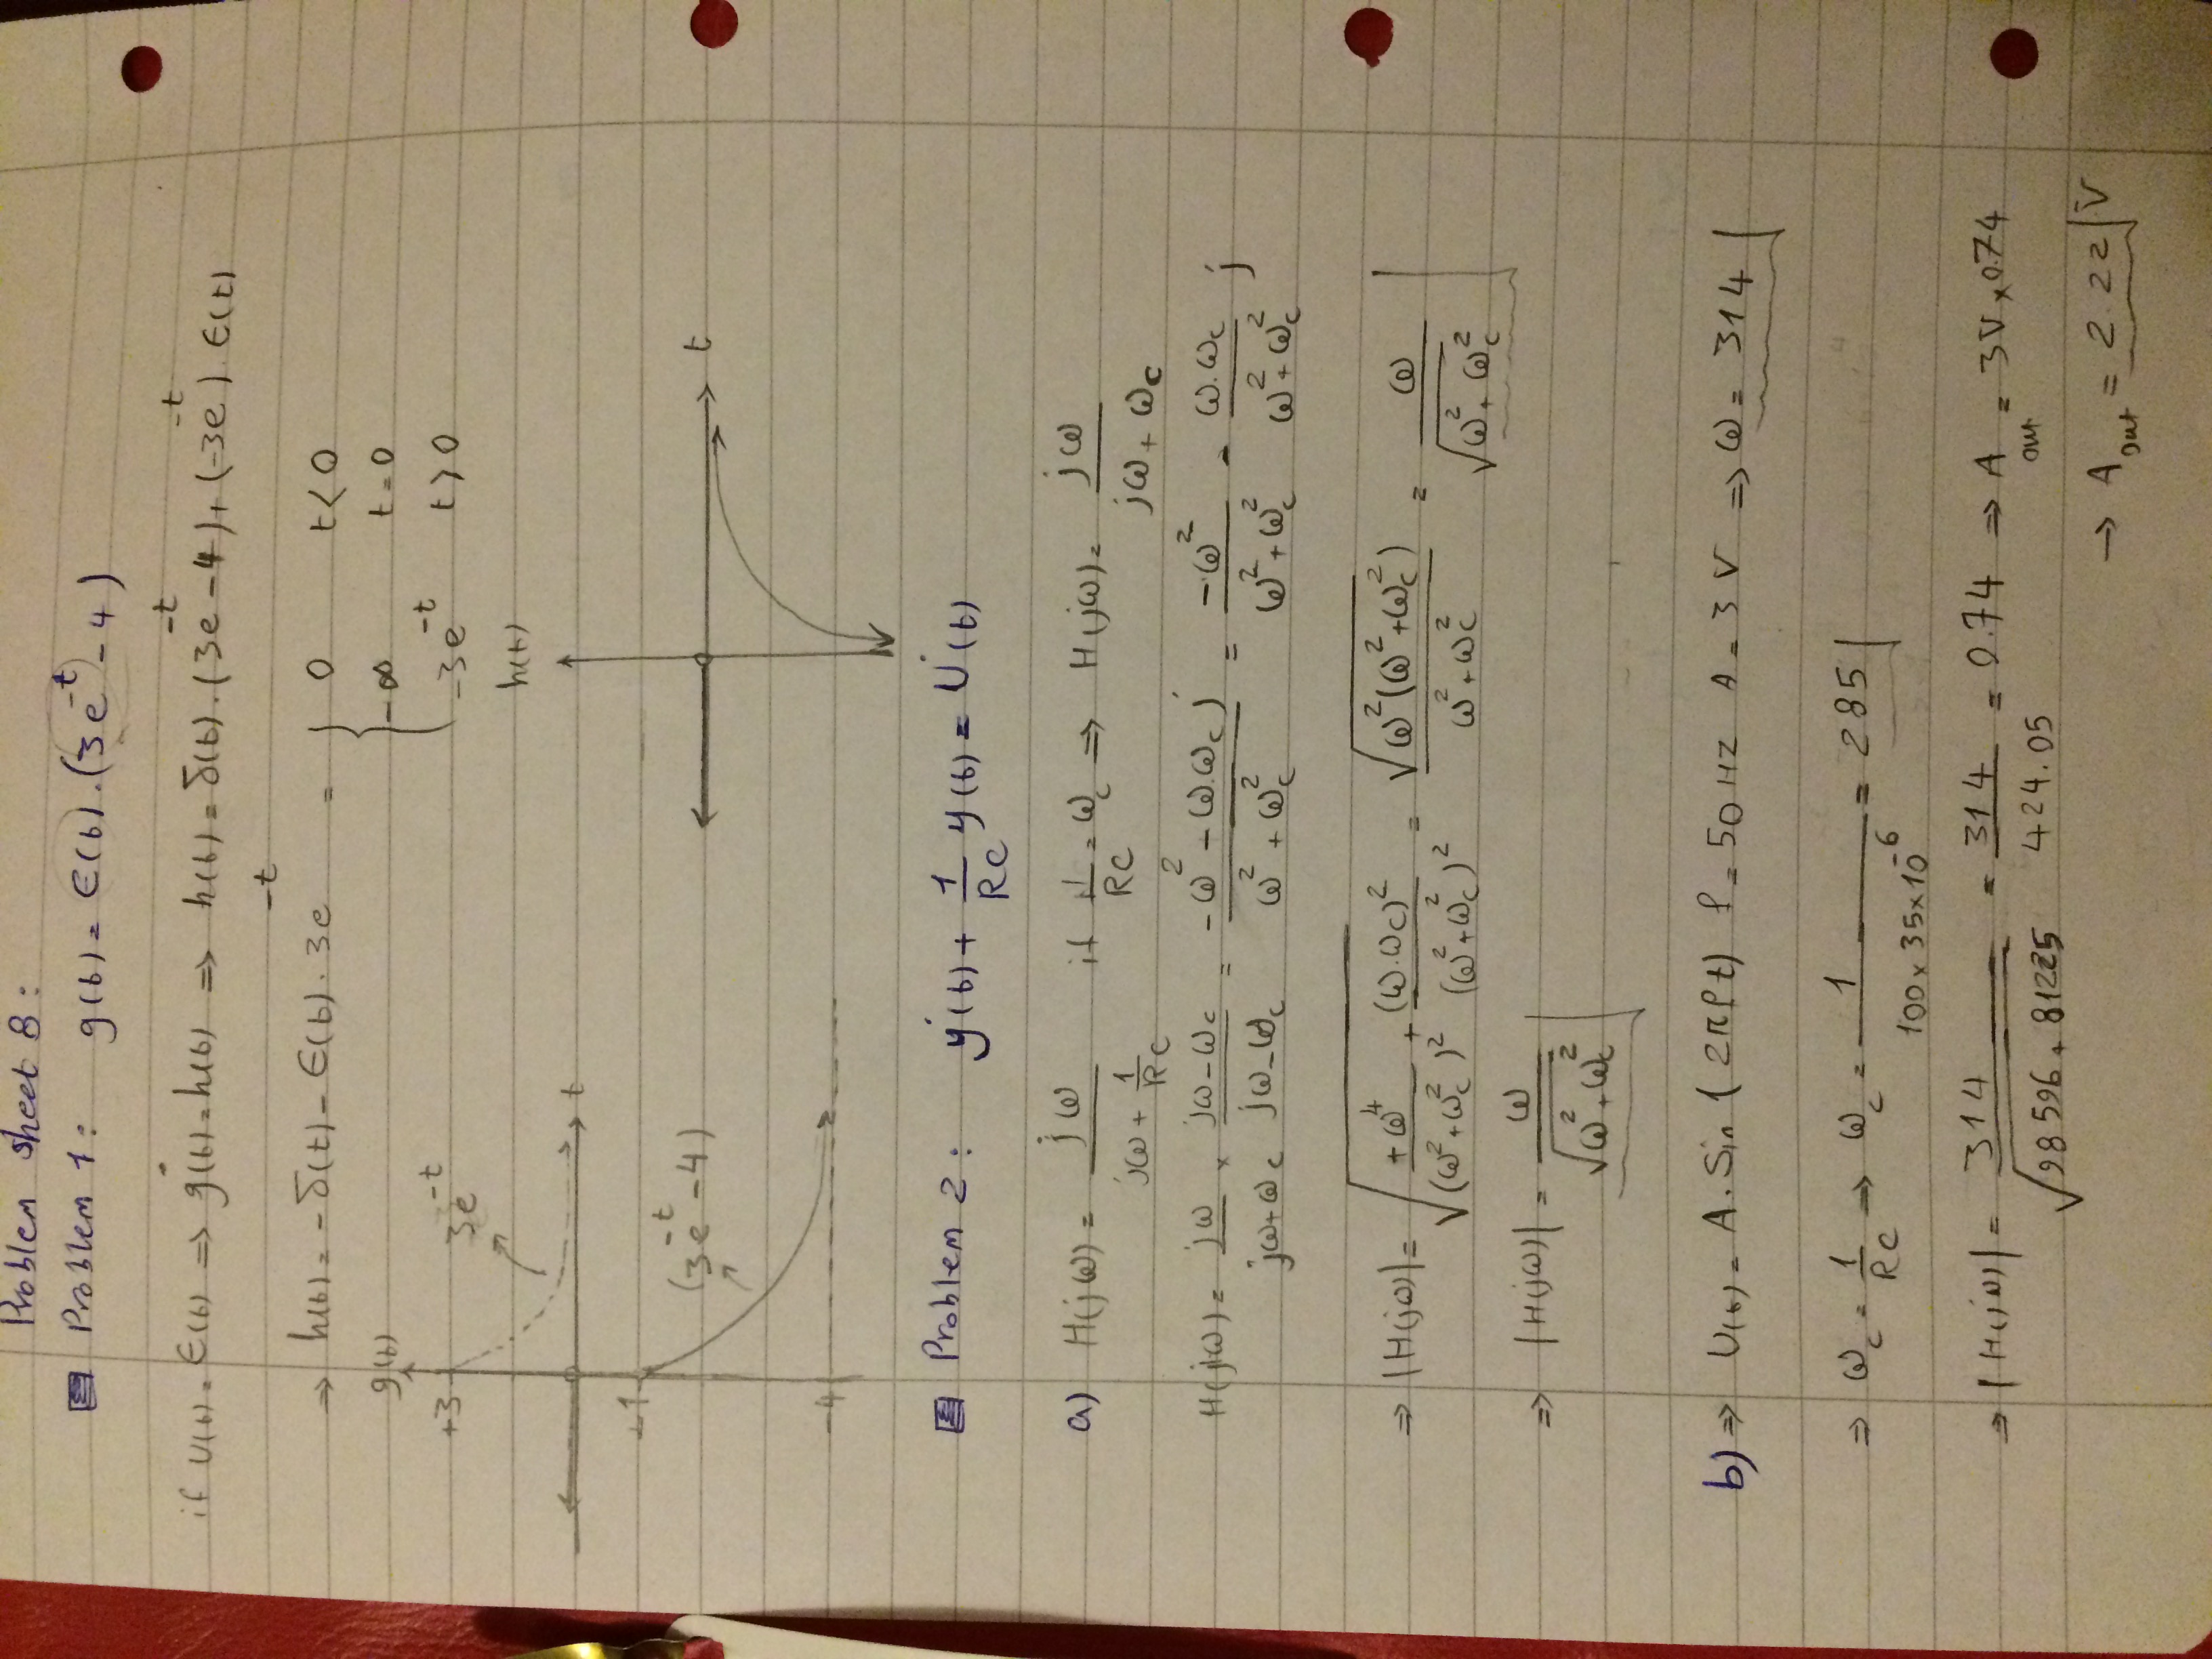 Problem sheet 8:
Problem 1: g(t) = ϵ(t).(3e^-t - 4)
if U(t) = ϵ(t) ⇒ ġ(t) = h(t) ⇒ h(t) = δ(t).(3e^-t - 4) + (-3e^-t). ϵ(t)
⇒ h(t) = -δ(t) - ϵ(t). 3e^-t = { 0 t<0
-∞ t=0
-3e^-t t>0
g(t)
+3
3e^-t
t
-1
(3e^-t - 4)
-4
h(t)
t
Problem 2: ẏ(t) + 1/RC y(t) = U̇(t)
a) H(jω) = jω / (jω + 1/RC) if 1/RC = ωc ⇒ H(jω) = jω / (jω + ωc)
H(jω) = jω / (jω+ωc) × (jω-ωc) / (jω-ωc) = (-ω² - ω.ωc j) / (ω² + ωc²) = -ω² / (ω²+ωc²) - ω.ωc / (ω²+ωc²) j
⇒ |H(jω)| = √(+ω⁴ / (ω²+ωc²)² + (ω.ωc)² / (ω²+ωc²)²) = √(ω²(ω²+ωc²)) / (ω²+ωc²) = ω / √(ω²+ωc²)
⇒ |H(jω)| = ω / √(ω²+ωc²)
b) ⇒ U(t) = A. Sin (2πft) f = 50 HZ A = 3 V ⇒ ω = 314
⇒ ωc = 1/RC ⇒ ωc = 1 / (100 × 35 × 10^-6) = 285
⇒ |H(jω)| = 314 / √(98596 + 81225) = 314 / 424.05 = 0.74 ⇒ A out = 3V × 0.74
→ A out = 2.22 V